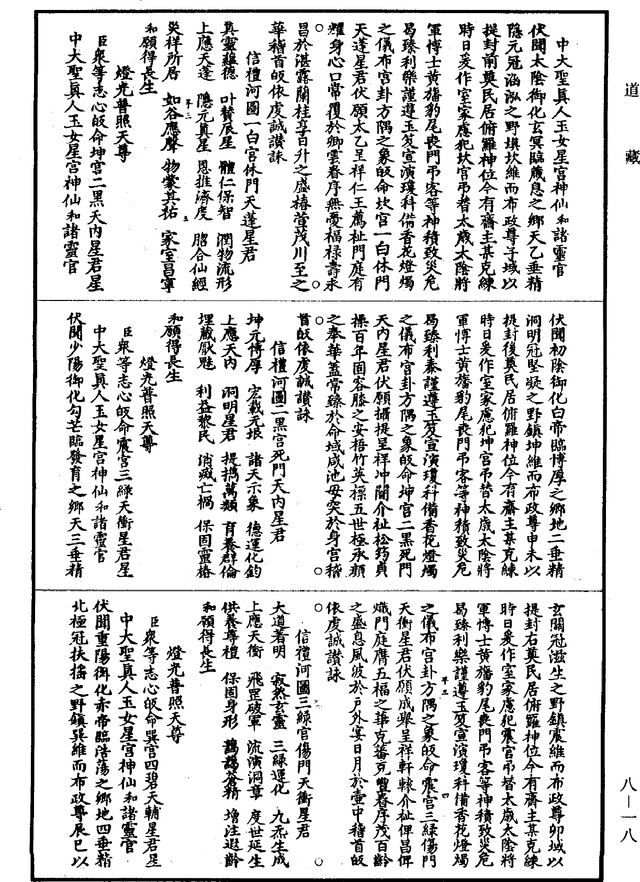 道藏
中大聖真人玉女星宮神仙和諸靈官
伏聞太陰御化玄冥臨歲息之鄉天乙垂精
隱元冠涵泓之野填坎維而布政尊子域以
提封前奠民居俯羅神位今有齋主某克練
時日爰作室家慮犯坎宮弔替太歲太陰將
軍博士黃旛豹尾喪門弔客等神積致災危
曷臻利樂謹遵玉笈宣演瓊科備香花燈燭
之儀布宮卦方隅之象皈命坎宮一白休門
天蓬星君伏願太乙呈祥仁王薦祉門庭有
耀身心口常覆於卿雲眷序無憂福祿壽永
昌於湛露蘭桂享百升之盛椿萱茂川至之
華稽首皈依虔誠讚詠
信禮河圖一白宮休門天蓬星君
真靈蘊德 叶賛辰星 體仁保智 潤物流形
上應天蓬 隱元真星 恩推濟度 脗合仙經
災祥所居 如谷應聲 物蒙其祐 家室昌寧
和願得長生
燈光普照天尊
臣衆等志心皈命坤宮二黑天內星君星
中大聖真人玉女星宮神仙和諸靈官
伏聞初陰御化白帝臨博厚之鄉地二垂精
洞明冠堅凝之野鎮坤維而布政尊申未以
提封後奠民居俯羅神位今有齋主某克練
時日爰作室家慮犯坤宮弔替太歲太陰將
軍博士黃旛豹尾喪門弔客等神積致災危
曷臻利泰謹遵玉笈宣演瓊科備香花燈燭
之儀布宮卦方隅之象皈命坤宮二黑死門
天內星君伏願攝提呈祥冲闡介祉松筠貞
操百年固容膝之安梧竹英標五世極承顏
之奉華蓋常臻於命域咸池毋突於身宮稽
首皈依虔誠讚詠
信禮河圖二黑宮死門天內星君
坤元博厚 宏載无垠 諸天示象 德運化鈞
上應天內 洞明星君 提攜萬類 育養群倫
埋藏厭魅 利益黎民 消殄亡禍 保固靈椿
和願得長生
燈光普照天尊
臣衆等志心皈命震宮三綠天衝星君星
中大聖真人玉女星宮神仙和諸靈官
伏聞少陽御化勾芒臨發育之鄉天三垂精
玄關冠滋生之野鎮震維而布政尊卯域以
提封右奠民居俯羅神位今有齋主某克練
時日爰作室家慮犯震宮弔替太歲太陰將
軍博士黃旛豹尾喪門弔客等神積致災危
曷臻利樂謹遵玉笈宣演瓊科備香花燈燭
之儀布宮卦方隅之象皈命震宮三綠傷門
天衝星君伏願成舉呈祥軒轅介祉俾昌俾
熾門庭膺五福之華克蕃克豐眷序茂百齡
之盛息風波於戶外宴日月於壷中稽首皈
依虔誠讚詠
信禮河圖三綠宮傷門天衝星君
大道著明 寂然玄靈 三綠運化 九炁生成
上應天衝 飛罡破軍 流演洞章 度世延生
供養尊禮 保固身形 藹藹蒼精 增注遐齡
和願得長生
燈光普照天尊
臣衆等志心皈命巽宮四碧天輔星君星
中大聖真人玉女星宮神仙和諸靈官
伏聞重陽御化赤帝臨浩蕩之鄉地四垂精
北極冠扶搖之野鎮巽維而布政尊辰巳以
八—一八